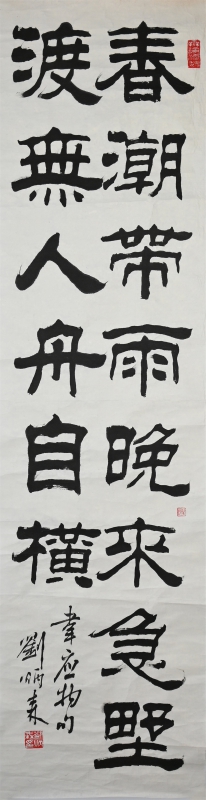 春潮帶雨晚来急野
渡無人舟自橫
韋应物句
劉炳森